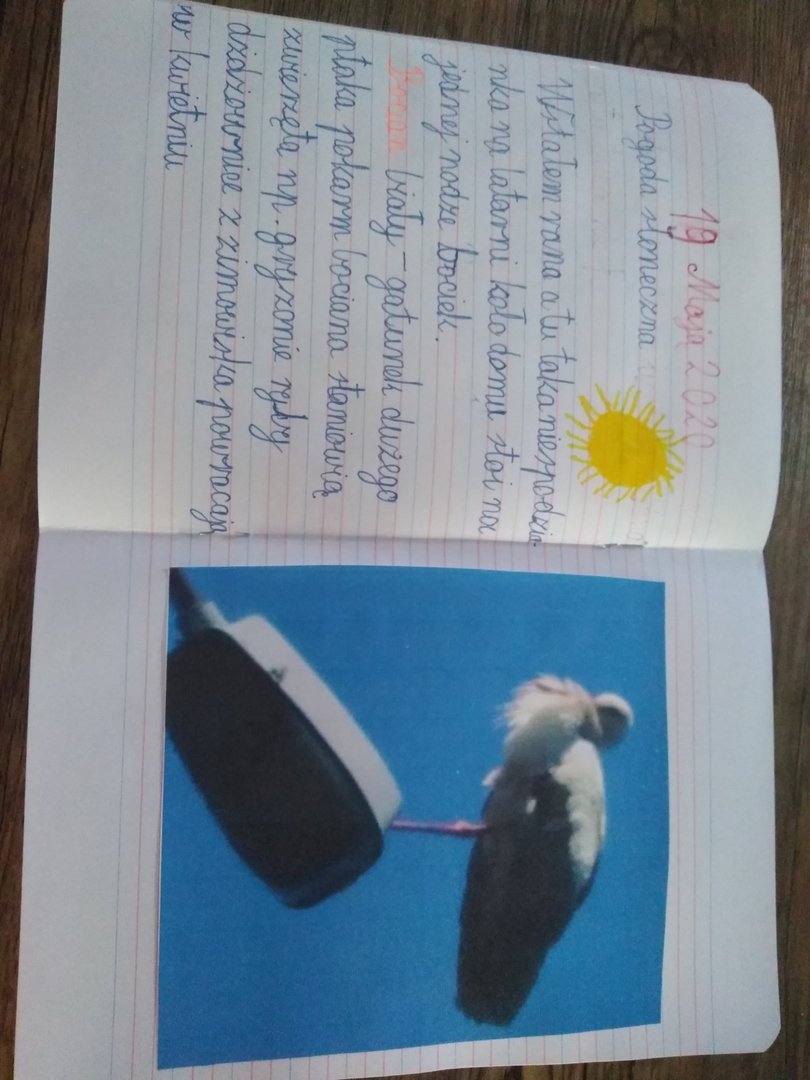 19 Maja 2020
Pogoda słoneczna
Wstałem rana a tu taka niespodzia-
nka na latarni koło domu stoi na
jednej nodze bociek.
Bocian biały - gatunek dużego
ptaka pokarm bociana stanowią
zwierzęta np. gryzonie ryby
dżdżownice z zimowiska powracają
w kwietniu